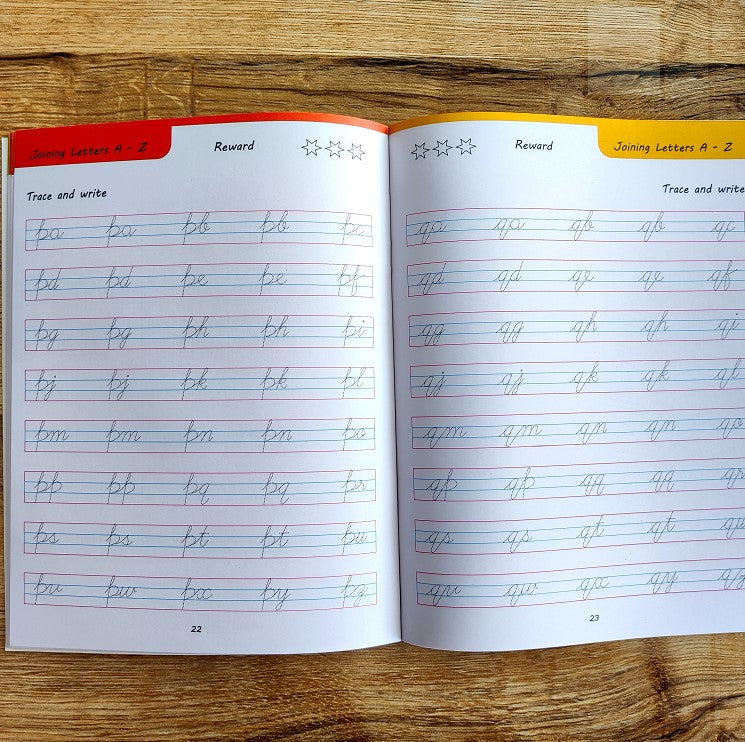 Joining Letters A - Z
Reward
Trace and write
pa pa pb pb pc
pd pd pe pe pf
pg pg ph ph pi
pj pj pk pk pl
pm pm pn pn po
pp pp pq pq pr
ps ps pt pt pu
pv pw px py pz
22
Reward
Joining Letters A - Z
Trace and write
qa qa qb qb qc
qd qd qe qe qf
qg qg qh qh qi
qj qj qk qk ql
qm qm qn qn qo
qp qp qq qq qr
qs qs qt qt qu
qv qw qx qy qz
23